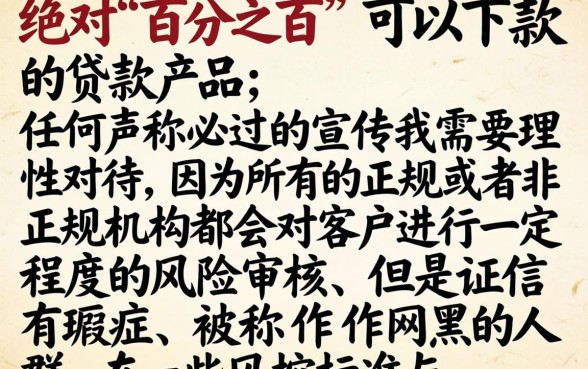 绝对“百分之百”可以下款
的贷款产品；
任何声称必过的宣传我需要理
性对待，因为所有的正规或者非
正规机构都会对客户进行一定
程度的风险审核、但是证信
有瑕症、被称作作网黑的人
群、在一些风控标准与